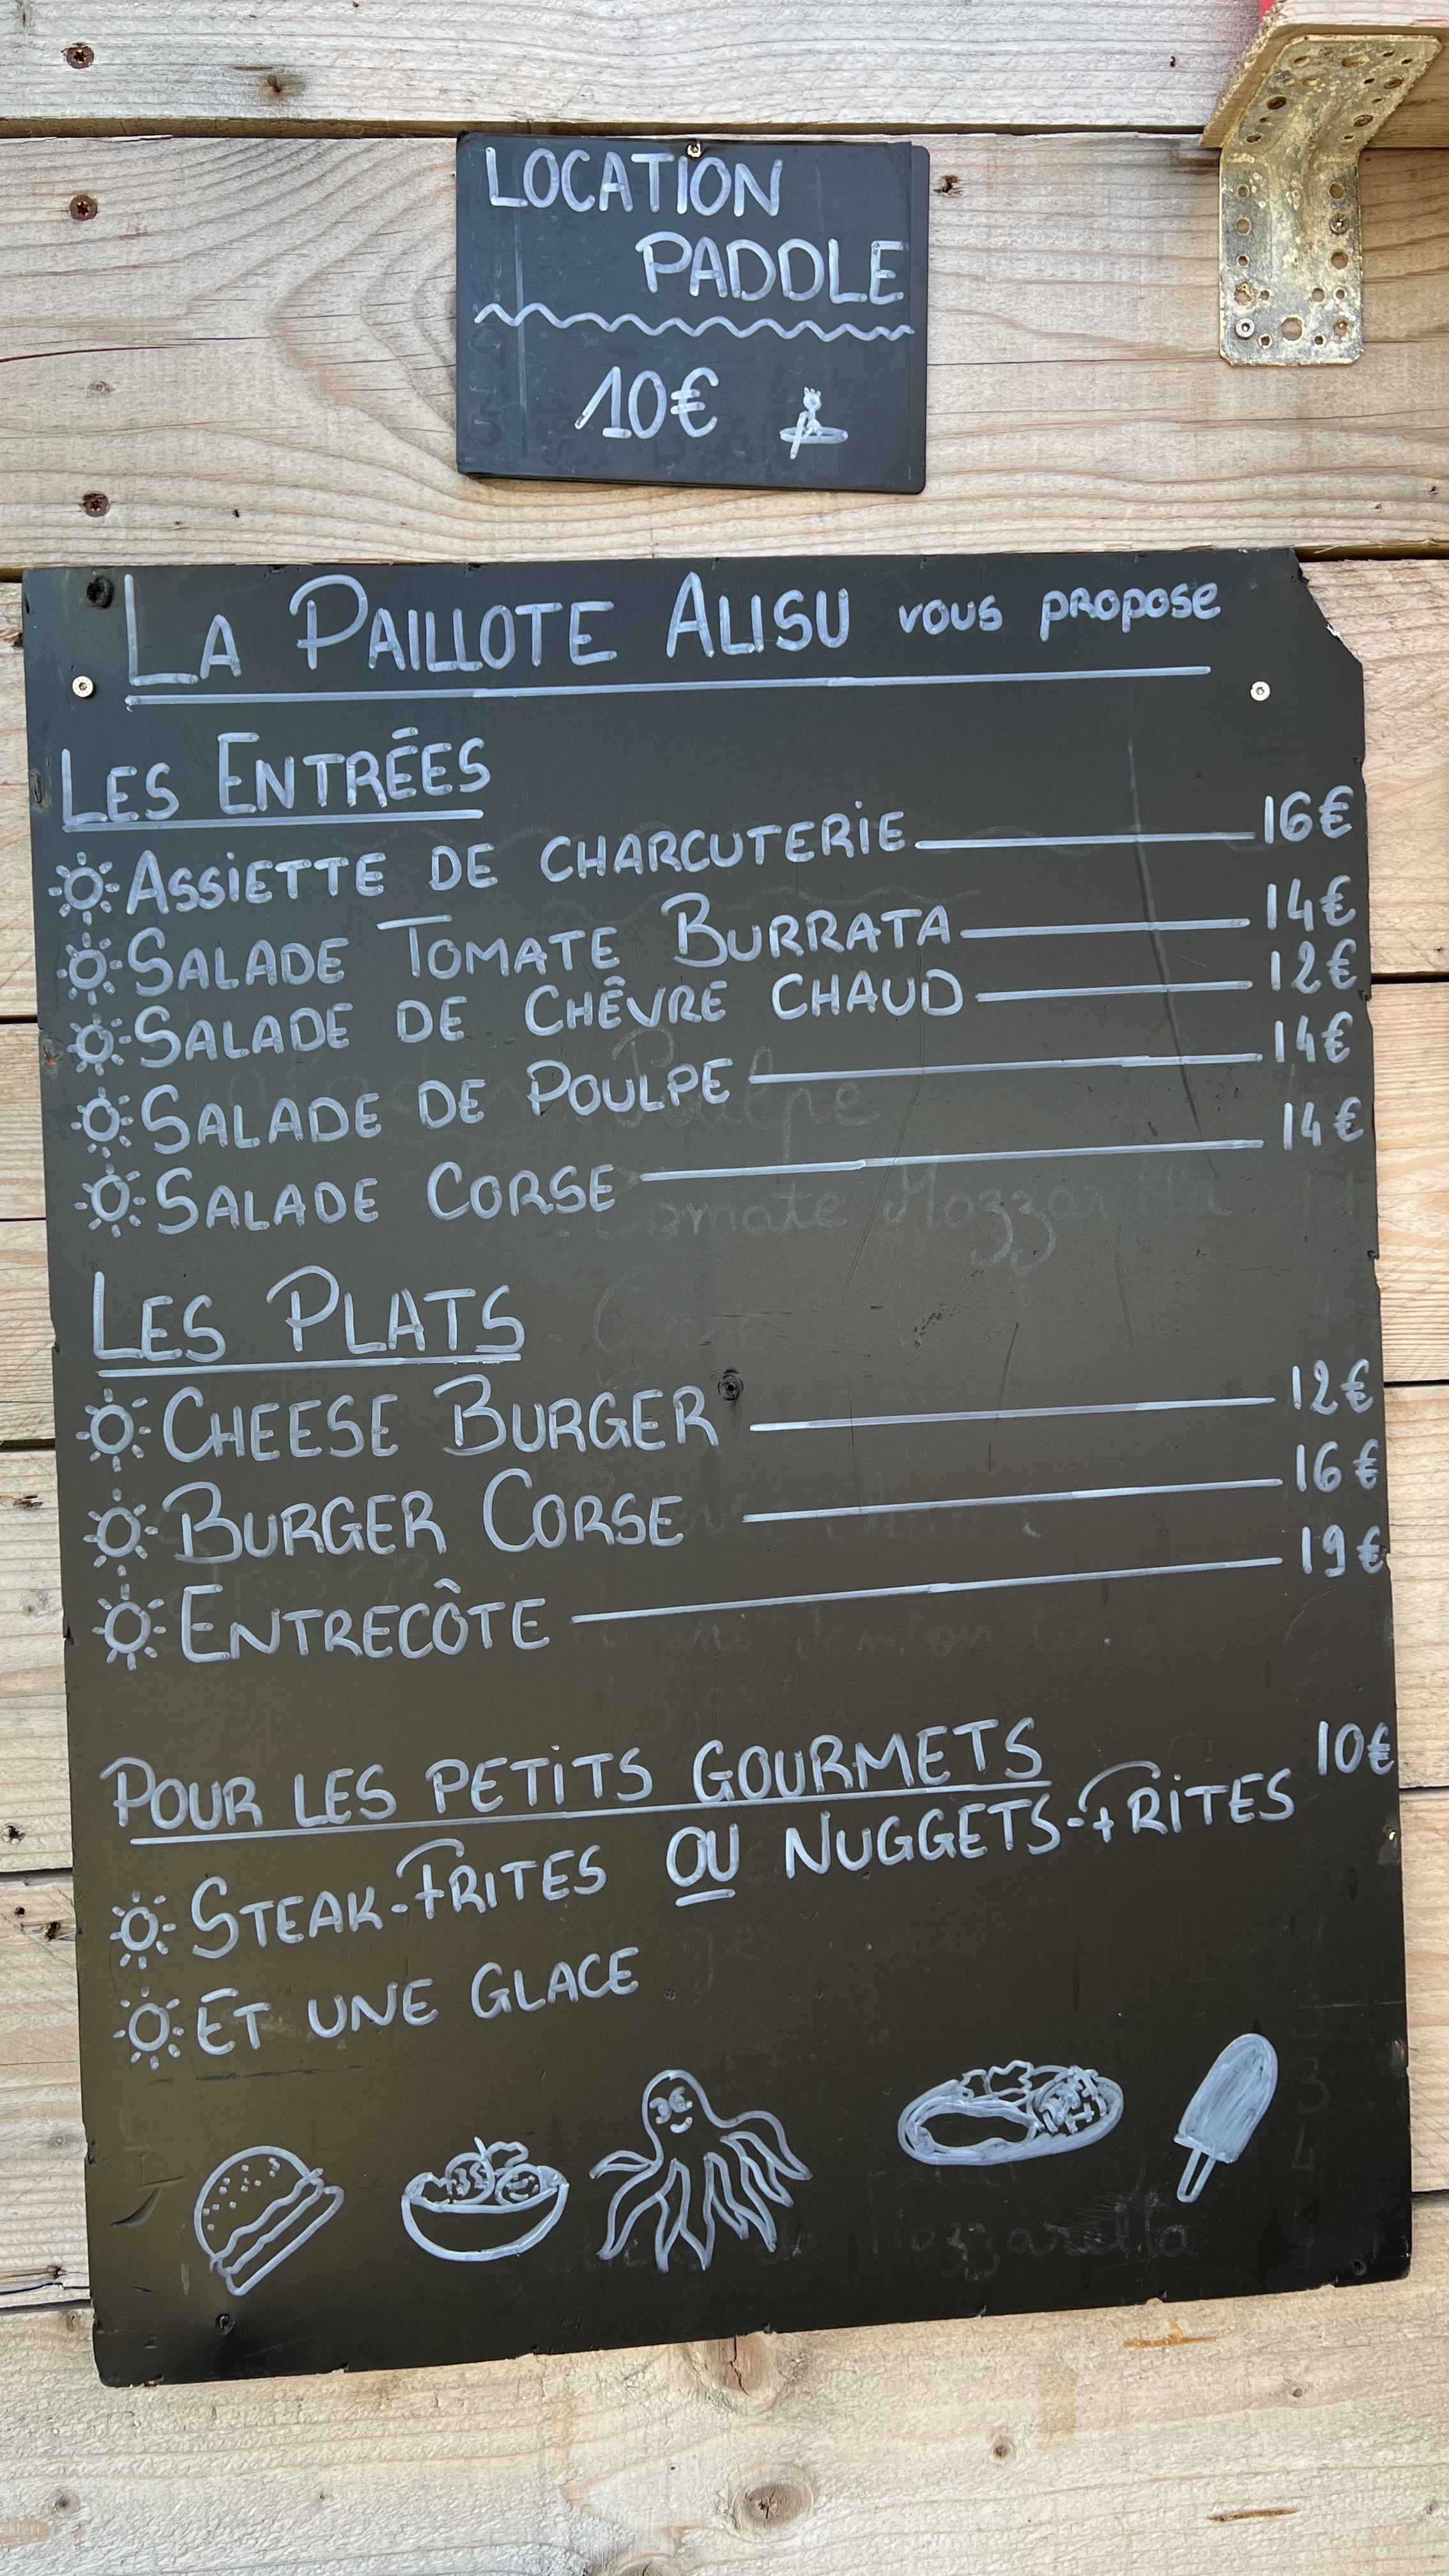 LOCATION
PADDLE
10€
LA PAILLOTE ALISU vous propose
LES ENTRÉES
ASSIETTE DE CHARCUTERIE 16€
SALADE TOMATE BURRATA 14€
SALADE DE CHÊVRE CHAUD 12€
SALADE DE POULPE 14€
SALADE CORSE 14€
LES PLATS
CHEESE BURGER 12€
BURGER CORSE 16€
ENTRECÔTE 19€
POUR LES PETITS GOURMETS 10€
STEAK-FRITES OU NUGGETS-FRITES
ET UNE GLACE